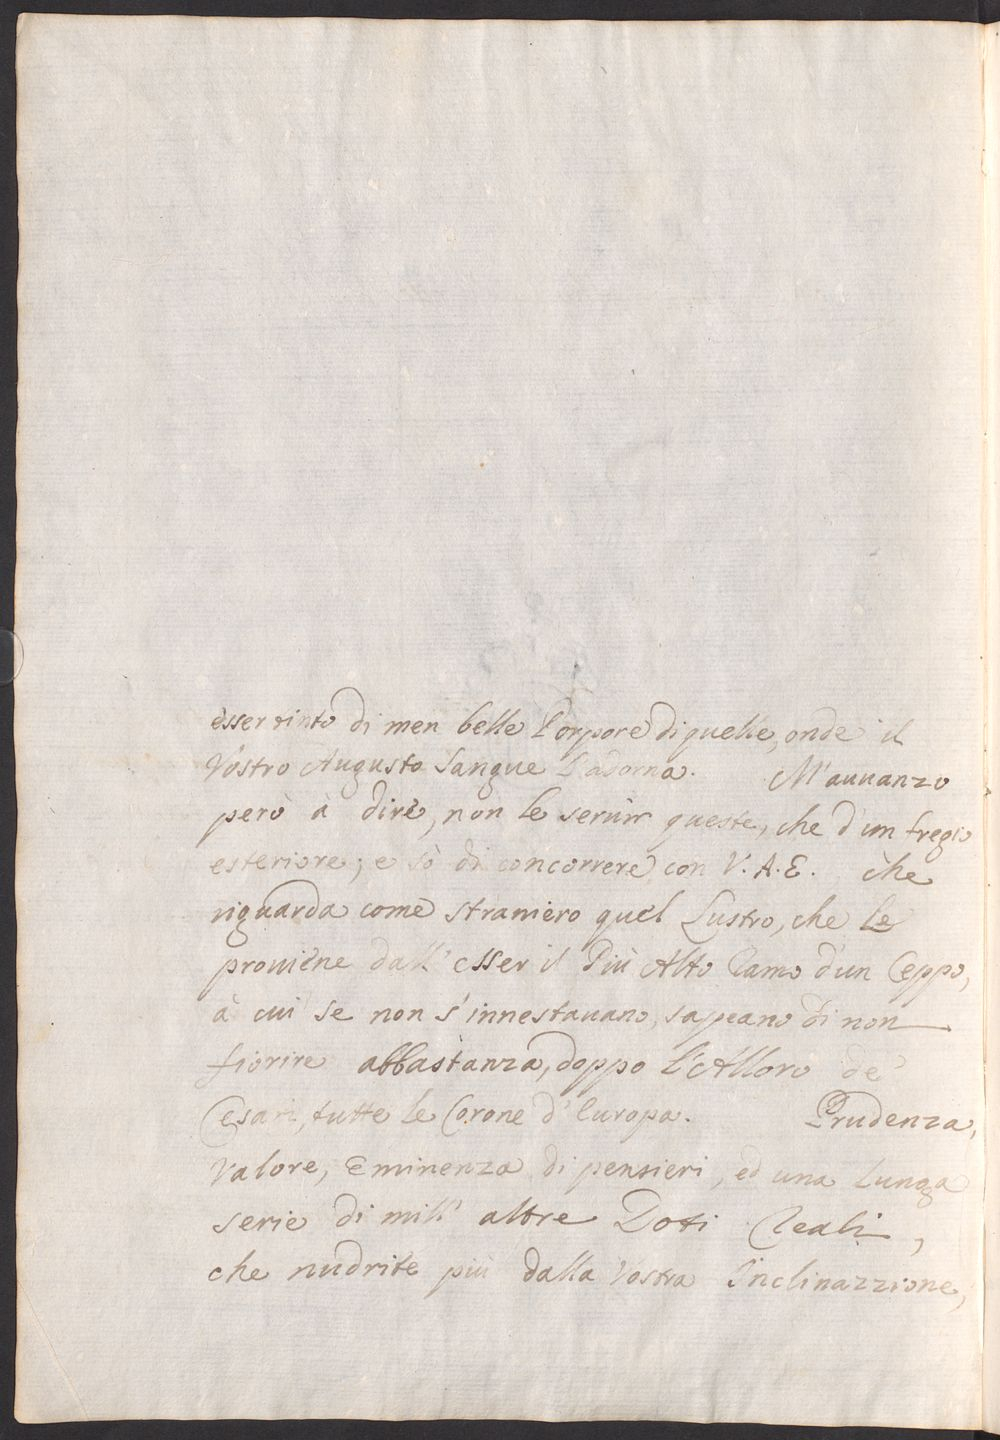 esser tinto di men belle Porpore di quelle, onde il
Vostro Augusto Sangue s'adorna. M'auuanzo
però à dire, non le seruir queste, che d'un fregio
esteriore; e sò di concorrere con V. A. E. che
riguarda come straniero quel Lustro, che le
prouiene dall' esser il Più Alto Ramo d'un Ceppo,
à cui se non s'innestauano, sapeano di non
fiorire abbastanza, doppo l'Alloro de'
Cesari, tutte le Corone d'Europa. Prudenza,
Valore, Eminenza di pensieri, ed una lunga
serie di mill' altre Doti Reali,
che nudrite più dalla Vostra Inclinazzione,